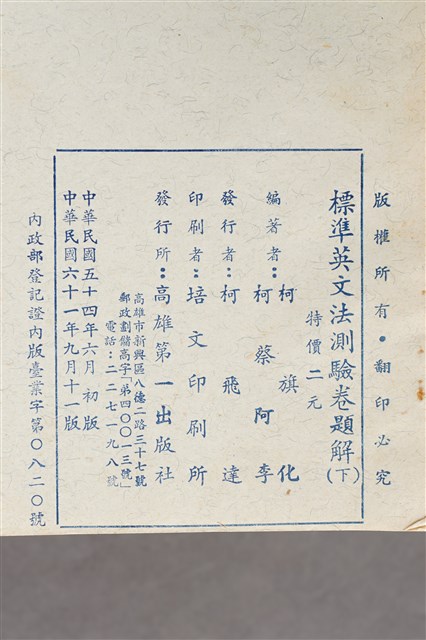 版權所有•翻印必究
標準英文法測驗卷題解(下)
特價二元
編著者：柯旗化
柯蔡阿李
發行者：柯飛達
印刷者：培文印刷所
發行所：高雄第一出版社
高雄市新興區八德二路三十七號
郵政劃儲高字第四〇〇一三號
電話：二二七一九八號
中華民國五十四年六月初版
中華民國六十一年九月十一版
內政部登記證內版臺業字第〇八二〇號